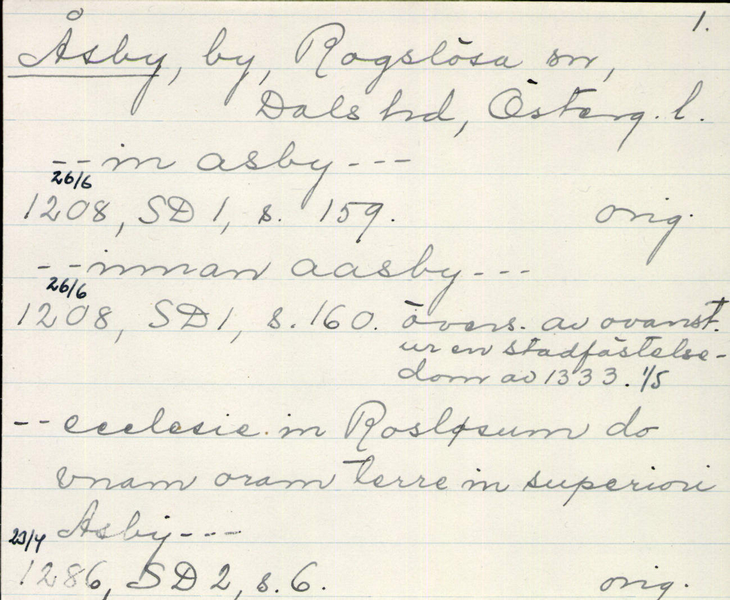 1.
Åsby, by, Rogslösa sn,
Dals hd, Österg. l.
-- in asby ---
26/6
1208, SD 1, s. 159. orig.
-- innan aasby ---
26/6
1208, SD 1, s. 160. övers. av ovanst.
ur en stadfästelse-
dom av 1333. 1/5
-- ecclesie in Rosløsum do
vnam oram terre in superiori
Asby ---
23/4
1286, SD 2, s. 6. orig.